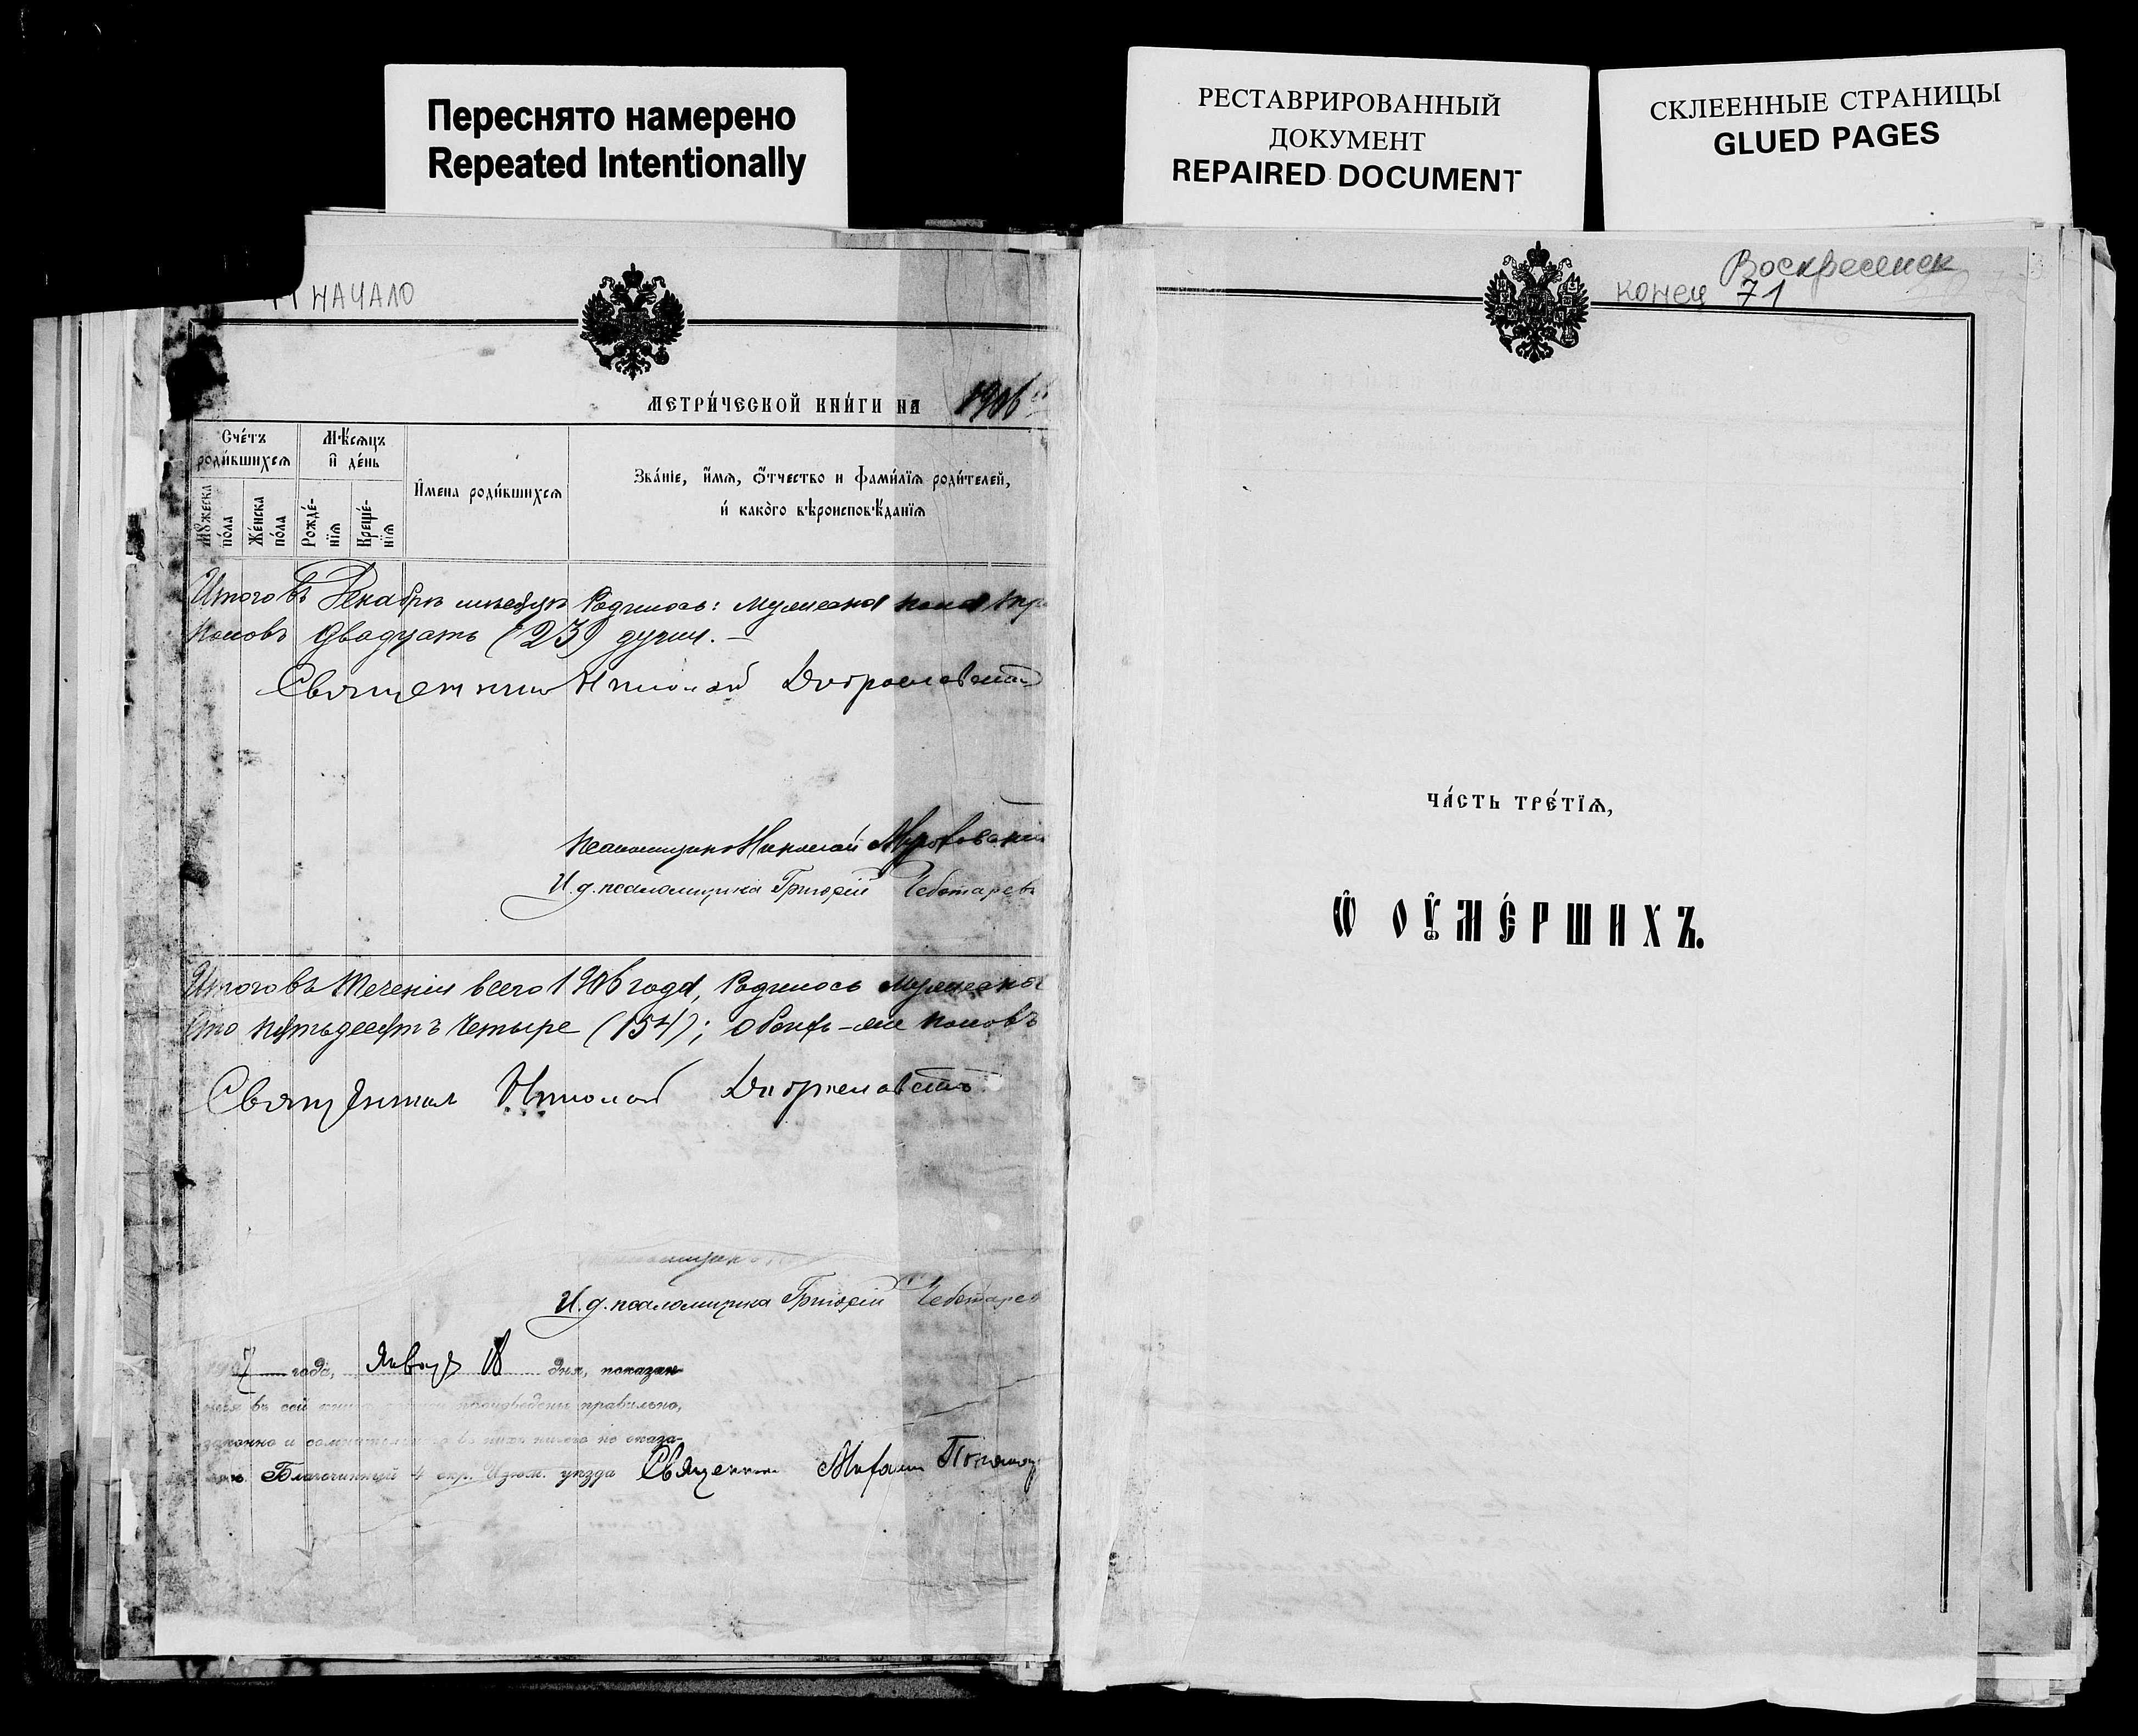 Переснято намерено
Repeated Intentionally
РЕСТАВРИРОВАННЫЙ
ДОКУМЕНТ
REPAIRED DOCUMENT
СКЛЕЕННЫЕ СТРАНИЦЫ
GLUED PAGES
НАЧАЛО
МЕТРИ́ЧЕСКОЙ КНИ́ГИ НА 1906
Сче́тъ
роди́вшихсѧ
Мѣ́сѧцъ
и҆ де́нь
И҆мена роди́вшихсѧ
Зва́нїе, и҆́мѧ, ѻ҆́тчество и фами́лїѧ роди́телей,
и҆ како́го вѣроисповѣ́данїѧ
Мꙋжеска
по́ла
Же́нска
по́ла
Рожде́-
нїѧ
Креще́-
нїѧ
Итого въ Декабрѣ мѣсяцѣ Родилось: мужеска пола
половъ двадцать (23) души. —
Священникъ Николай Доброславскій
Псаломщикъ Николай
И. д. псаломщика Григорій Чеботаревъ
Итого въ теченіи всего 1906 года, Родилось мужеска
сто пятьдесятъ четыре (154); обоего-же половъ
Священникъ Николай Доброславскій
И. д. псаломщика Григорій Чеботарев
1907 года, Января 18 дня, показан-
ныя въ сей книгѣ произведены правильно,
законно и сомнительнаго въ нихъ ничего не оказа-
лось Благочинный 4 окр. Изюм. уѣзда Священникъ
Воскресенск
конец 71
ЧА́СТЬ ТРЕ́ТЇѦ,
Ѡ҆ ОУ҆МЕ́РШИХЪ.